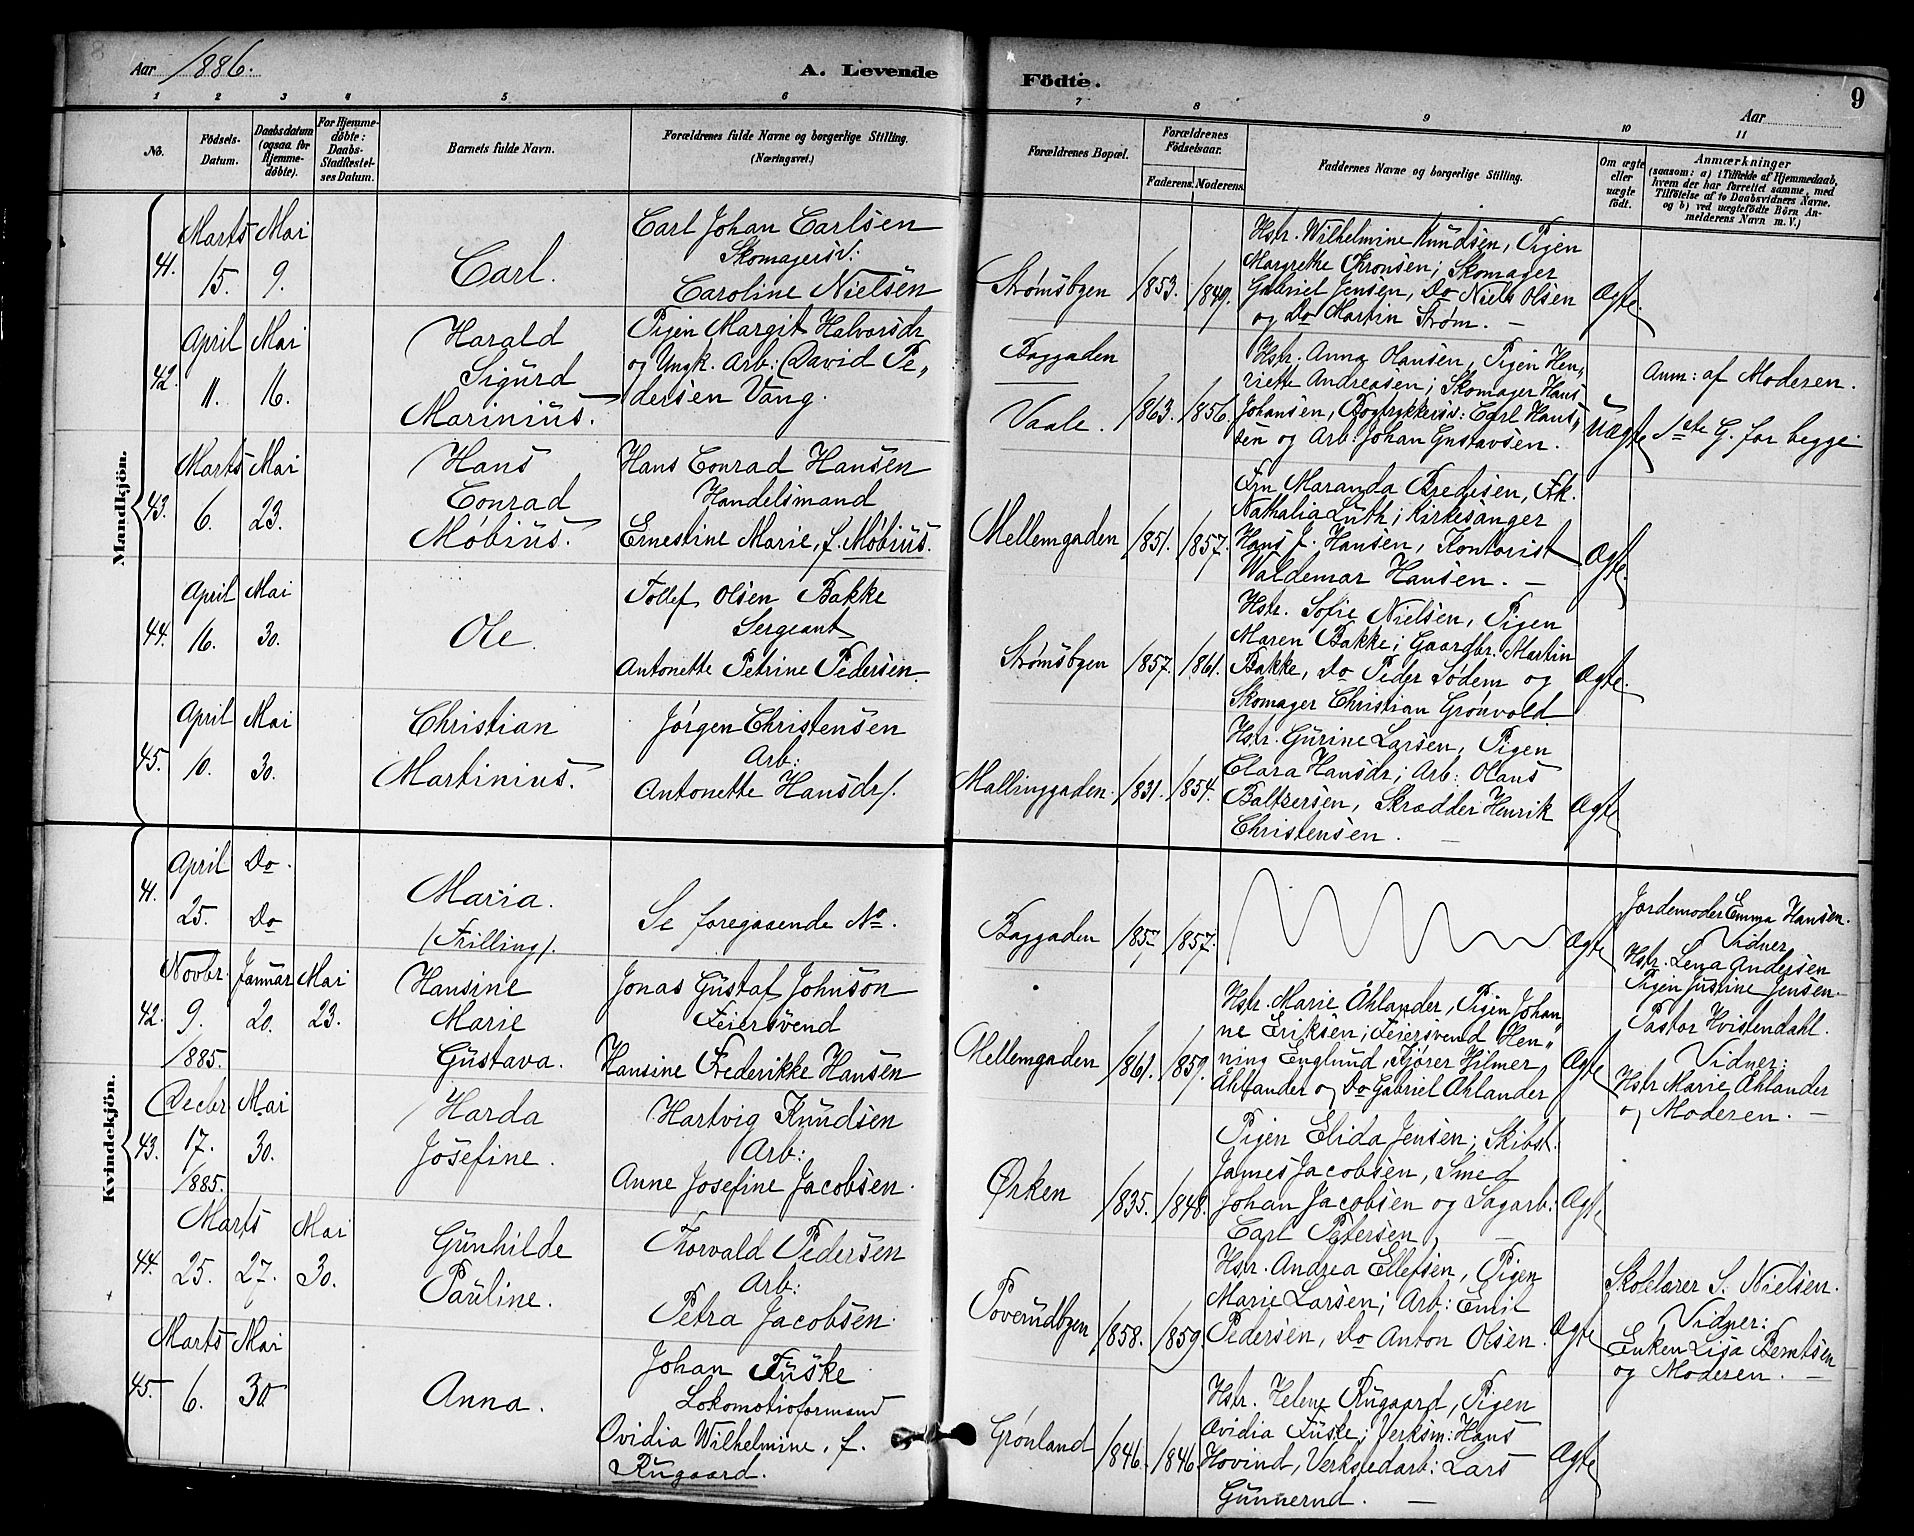 8
Aar 1886.
A. Levende
Födte.
9
Aar
1 2 3 4 5 6 7 8 9 10 11
No.
Födsels-
Datum.
Daabsdatum
(ogsaa for
Hjemme-
döbte).
For Hjemme-
döbte:
Daabs-
Stadfæstel-
ses Datum.
Barnets fulde Navn.
Forældrenes fulde Navne og borgerlige Stilling.
(Næringsvei.)
Forældrenes Bopæl.
Forældrenes
Födselsaar.
Faderens. Moderens.
Faddernes Navne og borgerlige Stilling.
Om ægte
eller
uægte
födt.
Anmærkninger
(saasom: a) i Tilfælde af Hjemmedaab,
hvem der har forrettet samme, med
Tilföielse af to Daabsvidners Navne.
og b) ved uægtefödte Börn An-
melderens Navn m. V.)
Mandkjön.
41.
Marts
15.
Mai
9.
Carl.
Carl Johan Carlsen
Skomagersv:
Caroline Nielsen
Strømsbyen
1853.
1849.
Hstr. Wilhelmine Knudsen, Pigen
Margrethe Thronsen; Skomager
Gabriel Jensen, Do Niels Olsen
og Do Martin Strøm. —
Ægte.
42.
April
11.
Mai
16.
Harald
Sigurd
Marinius.
Pigen Margit Halvorsdr
og Ungk. Arb: David Pe-
dersen Vang.
Baggaden
Vaale.
1863.
1856.
Hstr. Anna Hansen, Pigen Hen-
riette Andreasen; Skomager Hans
Johansen, Bogtrykkersv: Carl Han-
sen og Arb: Johan Gustavsen.
Uægte
Anm: af Moderen.
1ste G. for begge
43.
Marts
6.
Mai
23.
Hans
Conrad
Møbius.
Hans Conrad Hansen
Handelsmand
Ernestine Marie, f. Møbius.
Mellemgaden
1851.
1857.
Fru Maranda Bredesen, Frk.
Nathalia Luth; Kirkesanger
Hans J. Hansen, Kontorist
Waldemar Hansen. —
Ægte.
44.
April
16.
Mai
30.
Ole.
Tollef Olsen Bakke
Sergeant
Antonette Petrine Pedersen.
Strømsbyen
1857.
1861.
Hstr. Sofie Nielsen, Pigen
Maren Bakke; Gaardbr. Martin
Bakke, Do Peder Sødem og
Skomager Christian Grønvold
Ægte.
45.
April
10.
Mai
30.
Christian
Martinius.
Jørgen Christensen
Arb:
Antonette Hansdr.
Mallinggaden.
1831.
1854.
Hstr. Gurine Larsen, Pigen
Clara Hansdr; Arb: Olaus
Baltzersen, Skrædder Henrik
Christensen. —
Ægte
Kvindekjön.
41.
April
25.
Do
Do
Maria.
(Trilling).
Se foregaaende No.
Baggaden
1857
1857.
Ægte
Jordemoder Emma Hansen.
Vidner
Hstr. Lena Andersen
Pigen Justine Jensen
42.
Novbr.
9.
1885.
Januar
20.
Mai
23.
Hansine
Marie
Gustava.
Jonas Gustaf Johnson
Feiersvend
Hansine Frederikke Hansen
Mellemgaden
1861.
1859.
Hstr. Marie Åhlander, Pigen Johan-
ne Eriksen; Feiersvend Hen-
ning Englund, Kjører Hilmer
Åhlander og Do Gabriel Åhlander
Ægte
Pastor Hvistendahl.
Vidner:
Hstr Marie Åhlander
og Moderen. —
43.
Decbr
17.
1885.
Mai
30.
Harda
Josefine.
Hartvig Knudsen
Arb:
Anne Josefine Jacobsen.
Ørken
1835.
1848.
Pigen Elida Jensen; Skibst.
James Jacobsen, Smed
Johan Jacobsen og Sagarb:
Carl Petersen, —
Ægte
44.
Marts
25. 27.
Mai
30.
Gunhilde
Pauline.
Thorvald Pedersen
Arb:
Petra Jacobsen
Poverudbyen
1858.
1859.
Hstr. Andrea Ellefsen, Pigen
Marie Larsen; Arb: Emil
Pedersen, Do Anton Olsen.
Ægte
Skolelærer S. Nielsen.
Vidner:
Enken Lisa Berntsen
og Moderen. —
45.
Marts
6.
Mai
30
Anna.
Johan Fuske
Lokomotivformand
Ovidia Wilhelmine, f.
Rugaard.
Grønland
1846.
1846
Hstr. Helene Rugaard, Pigen
Ovidia Fuske; Verksm: Hans
Hovind, Verkstedarb: Lars
Gunnerud. —
Ægte